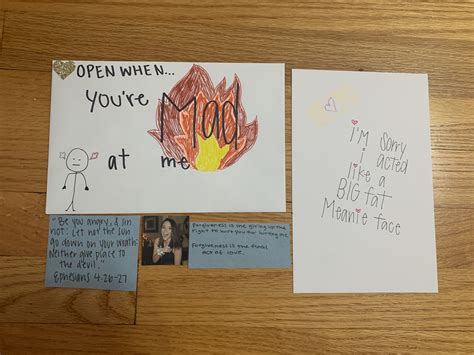 OPEN WHEN...
You're Mad
at me
I'M Sorry
I acted
like a
BIG fat
Meanie face
"Be you angry, & sin
not: Let not the sun
go down on your wrath:
Neither give place to
the devil."
Ephesians 4:26-27
Forgiveness is me giving up the
right to hurt you for hurting me.
Forgiveness is the final
act of love.